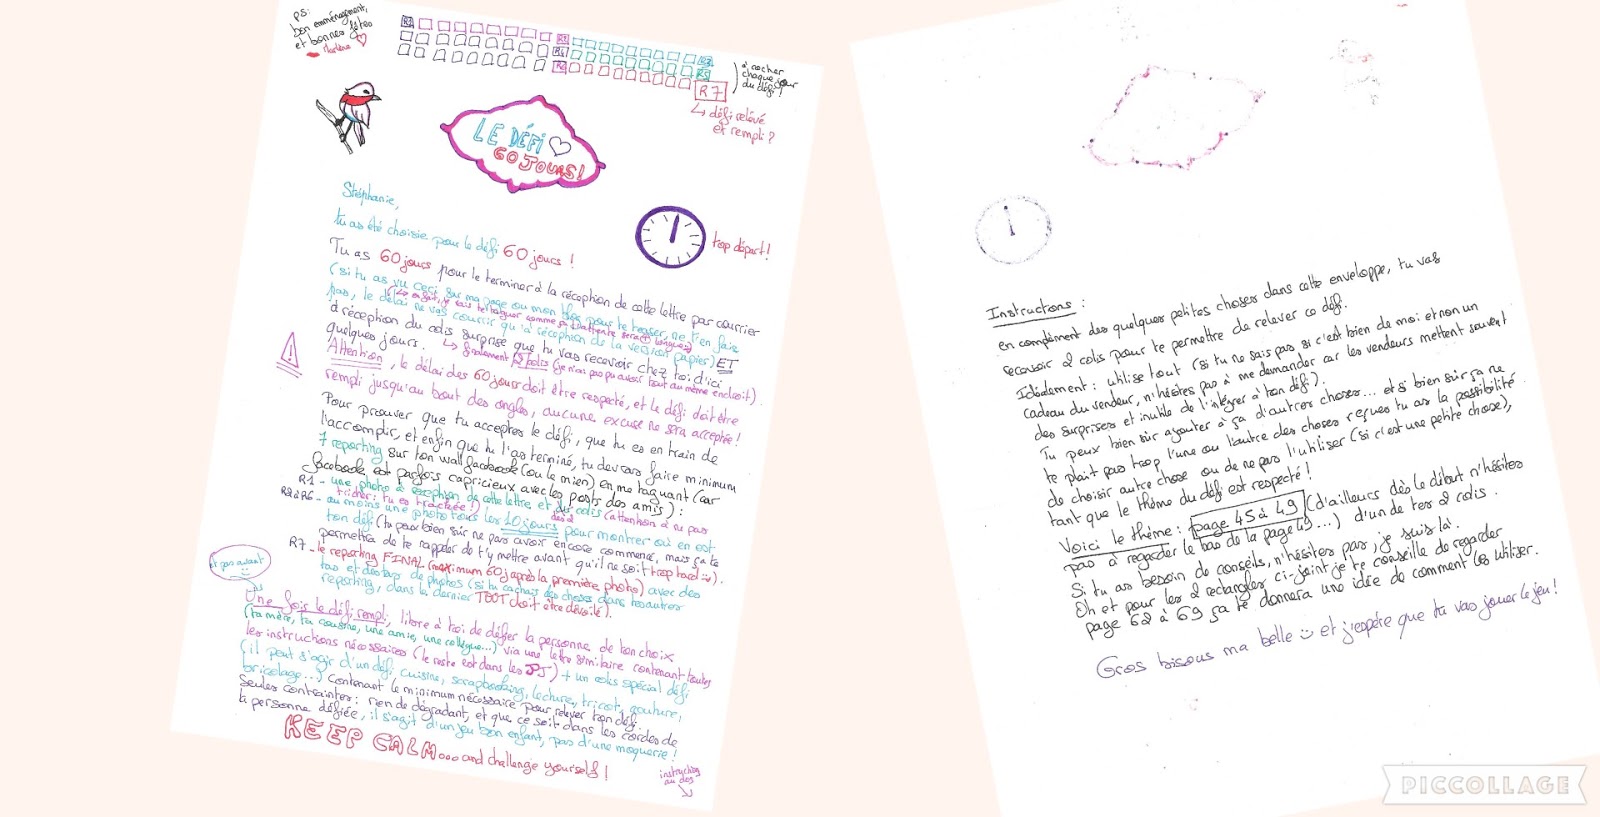 PS:
bon emménagement,
et bonnes fêtes
Marlène
R1
R2
R3
R4
R5
R6
R7
à cocher
chaque jour
du défi !
↳ défi relevé
et rempli ?
LE DÉFI
60 JOURS!
top départ!
Stéphanie,
tu as été choisie pour le défi 60 jours !
Tu as 60 jours pour le terminer à la réception de cette lettre par courrier
(si tu as vu ceci sur ma page ou mon blog pour te teaser, ne t'en faire
pas, le délai ne vas courrir qu'à réception de la version papier) ET
à réception du colis surprise que tu vas recevoir chez toi d'ici
quelques jours. ↳ finalement 2 colis (je n'ai pas pu avoir tout au même endroit).
Attention, le délai des 60 jours doit être respecté, et le défi doit être
rempli jusqu'au bout des ongles, aucune excuse ne sera acceptée !
Pour prouver que tu acceptes le défi, que tu es en train de
l'accomplir, et enfin que tu l'as terminé, tu devras faire minimum
7 reporting sur ton wall facebook (ou le mien) en me taguant (car
facebook est parfois capricieux avec les posts des amis) :
R1 - une photo à réception de cette lettre et du colis (attention à ne pas
tricher: tu es trackée!)
des 2
R2 à R6 - au moins une photo tous les 10 jours pour montrer où en est
ton défi (tu peux bien sûr ne pas avoir encore commencé, mais ça te
permettra de te rappeler de t'y mettre avant qu'il ne soit trop tard).
R7 - le reporting FINAL (maximum 60j après la première photo) avec des
tas et des tas de photos (si tu cachais des choses dans les autres
reporting, dans le dernier TOUT doit être dévoilé).
Et pas avant
Une fois le défi rempli, libre à toi de défier la personne de ton choix
(ta mère, ta cousine, une amie, une collègue...) via une lettre similaire contenant toutes
les instructions nécessaires (le reste est dans les PJ) + un colis spécial défi
(il peut s'agir d'un défi cuisine, scrapbooking, lecture, tricot, couture,
bricolage...) contenant le minimum nécessaire pour relever ton défi.
Seules contraintes: rien de dégradant, et que ce soit dans les cordes de
la personne défiée, il s'agit d'un jeu bon enfant, pas d'une moquerie !
KEEP CALM... and challenge yourself !
instructions
au dos
Instructions :
en complément des quelques petites choses dans cette enveloppe, tu vas
recevoir 2 colis pour te permettre de relever ce défi.
Idéalement : utilise tout (si tu ne sais pas si c'est bien de moi et non un
cadeau du vendeur, n'hésites pas à me demander car les vendeurs mettent souvent
des surprises et inutile de l'intégrer à ton défi).
Tu peux bien sûr ajouter à ça d'autres choses... et si bien sûr ça ne
te plait pas trop l'une ou l'autre des choses reçues tu as la possibilité
de choisir autre chose ou de ne pas l'utiliser (si c'est une petite chose),
tant que le thème du défi est respecté !
Voici le thème : page 45 à 49 (d'ailleurs dès le début n'hésites
pas à regarder le bas de la page 49...) d'un de tes 2 colis.
Si tu as besoin de conseils, n'hésites pas, je suis là.
Oh et pour les 2 rectangles ci-joint je te conseille de regarder
page 62 à 69 ça te donnera une idée de comment les utiliser.
Gros bisous ma belle et j'espère que tu vas jouer le jeu !
PICCOLLAGE